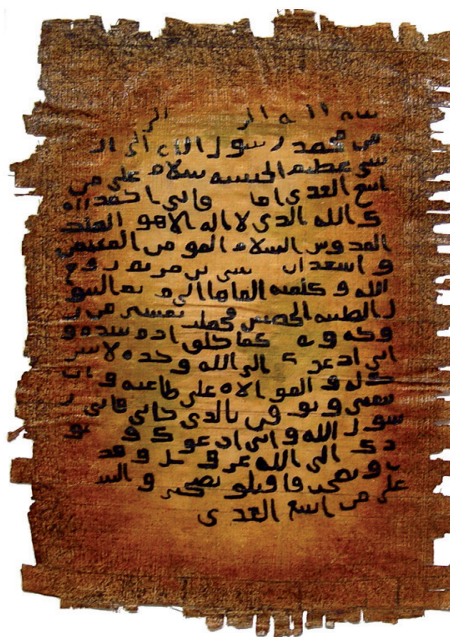 سم الله الر الر
من محمد رسول الله الى ال
شي عظيم الحبشه سلام على من
اتبع الهدى اما فاني احمد
ك الله الذي لا اله الا هو الملك
القدوس السلام المومن المهيمن
و اشهد ان سى بن مريم روح
الله و كلمته القاها الى مر يم البتو
ل الطيبه الحصينه فحملت بعيسى من ر
وحه و كما خلق ادم بيده و
اني ادعو ك الى الله و حده لا شر
ك له و الموالاه على طاعته و
تتبعني و توقن بالذي جاني فاني ر
سول الله و اني ادعو ك
دك الى الله عز و جل و قد
و نصحت فاقبلو نصيحتي و السلا
على من اتبع الهدى